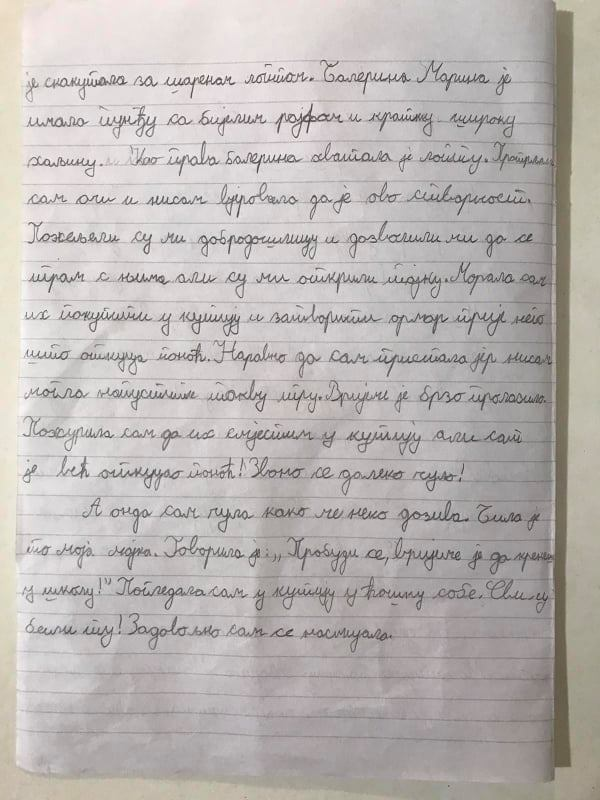 је скакутала за шареном лоптом. Балерина Марина је
имала пунђу са бијелим рајфом и кратку широку
хаљину. Као права балерина хватала је лопту. Протрљала
сам очи и нисам вјеровала да је ово стварност.
Пожељели су ми добродошлицу и дозволили ми да се
играм с њима али су ми открили тајну. Морала сам
их покупити у кутију и затворити ормар прије него
што откуца поноћ. Наравно да сам пристала јер нисам
могла напустити такву игру. Вријеме је брзо пролазило.
Пожурила сам да их смјестим у кутију али сат
је већ откуцао поноћ! Звоно се далеко чуло!
А онда сам чула како ме неко дозива. Била је
то моја мајка. Говорила је: „Пробуди се, вријеме је да кренеш
у школу!" Погледала сам у кутију у ћошку собе. Сви су
били ту! Задовољно сам се насмијала.